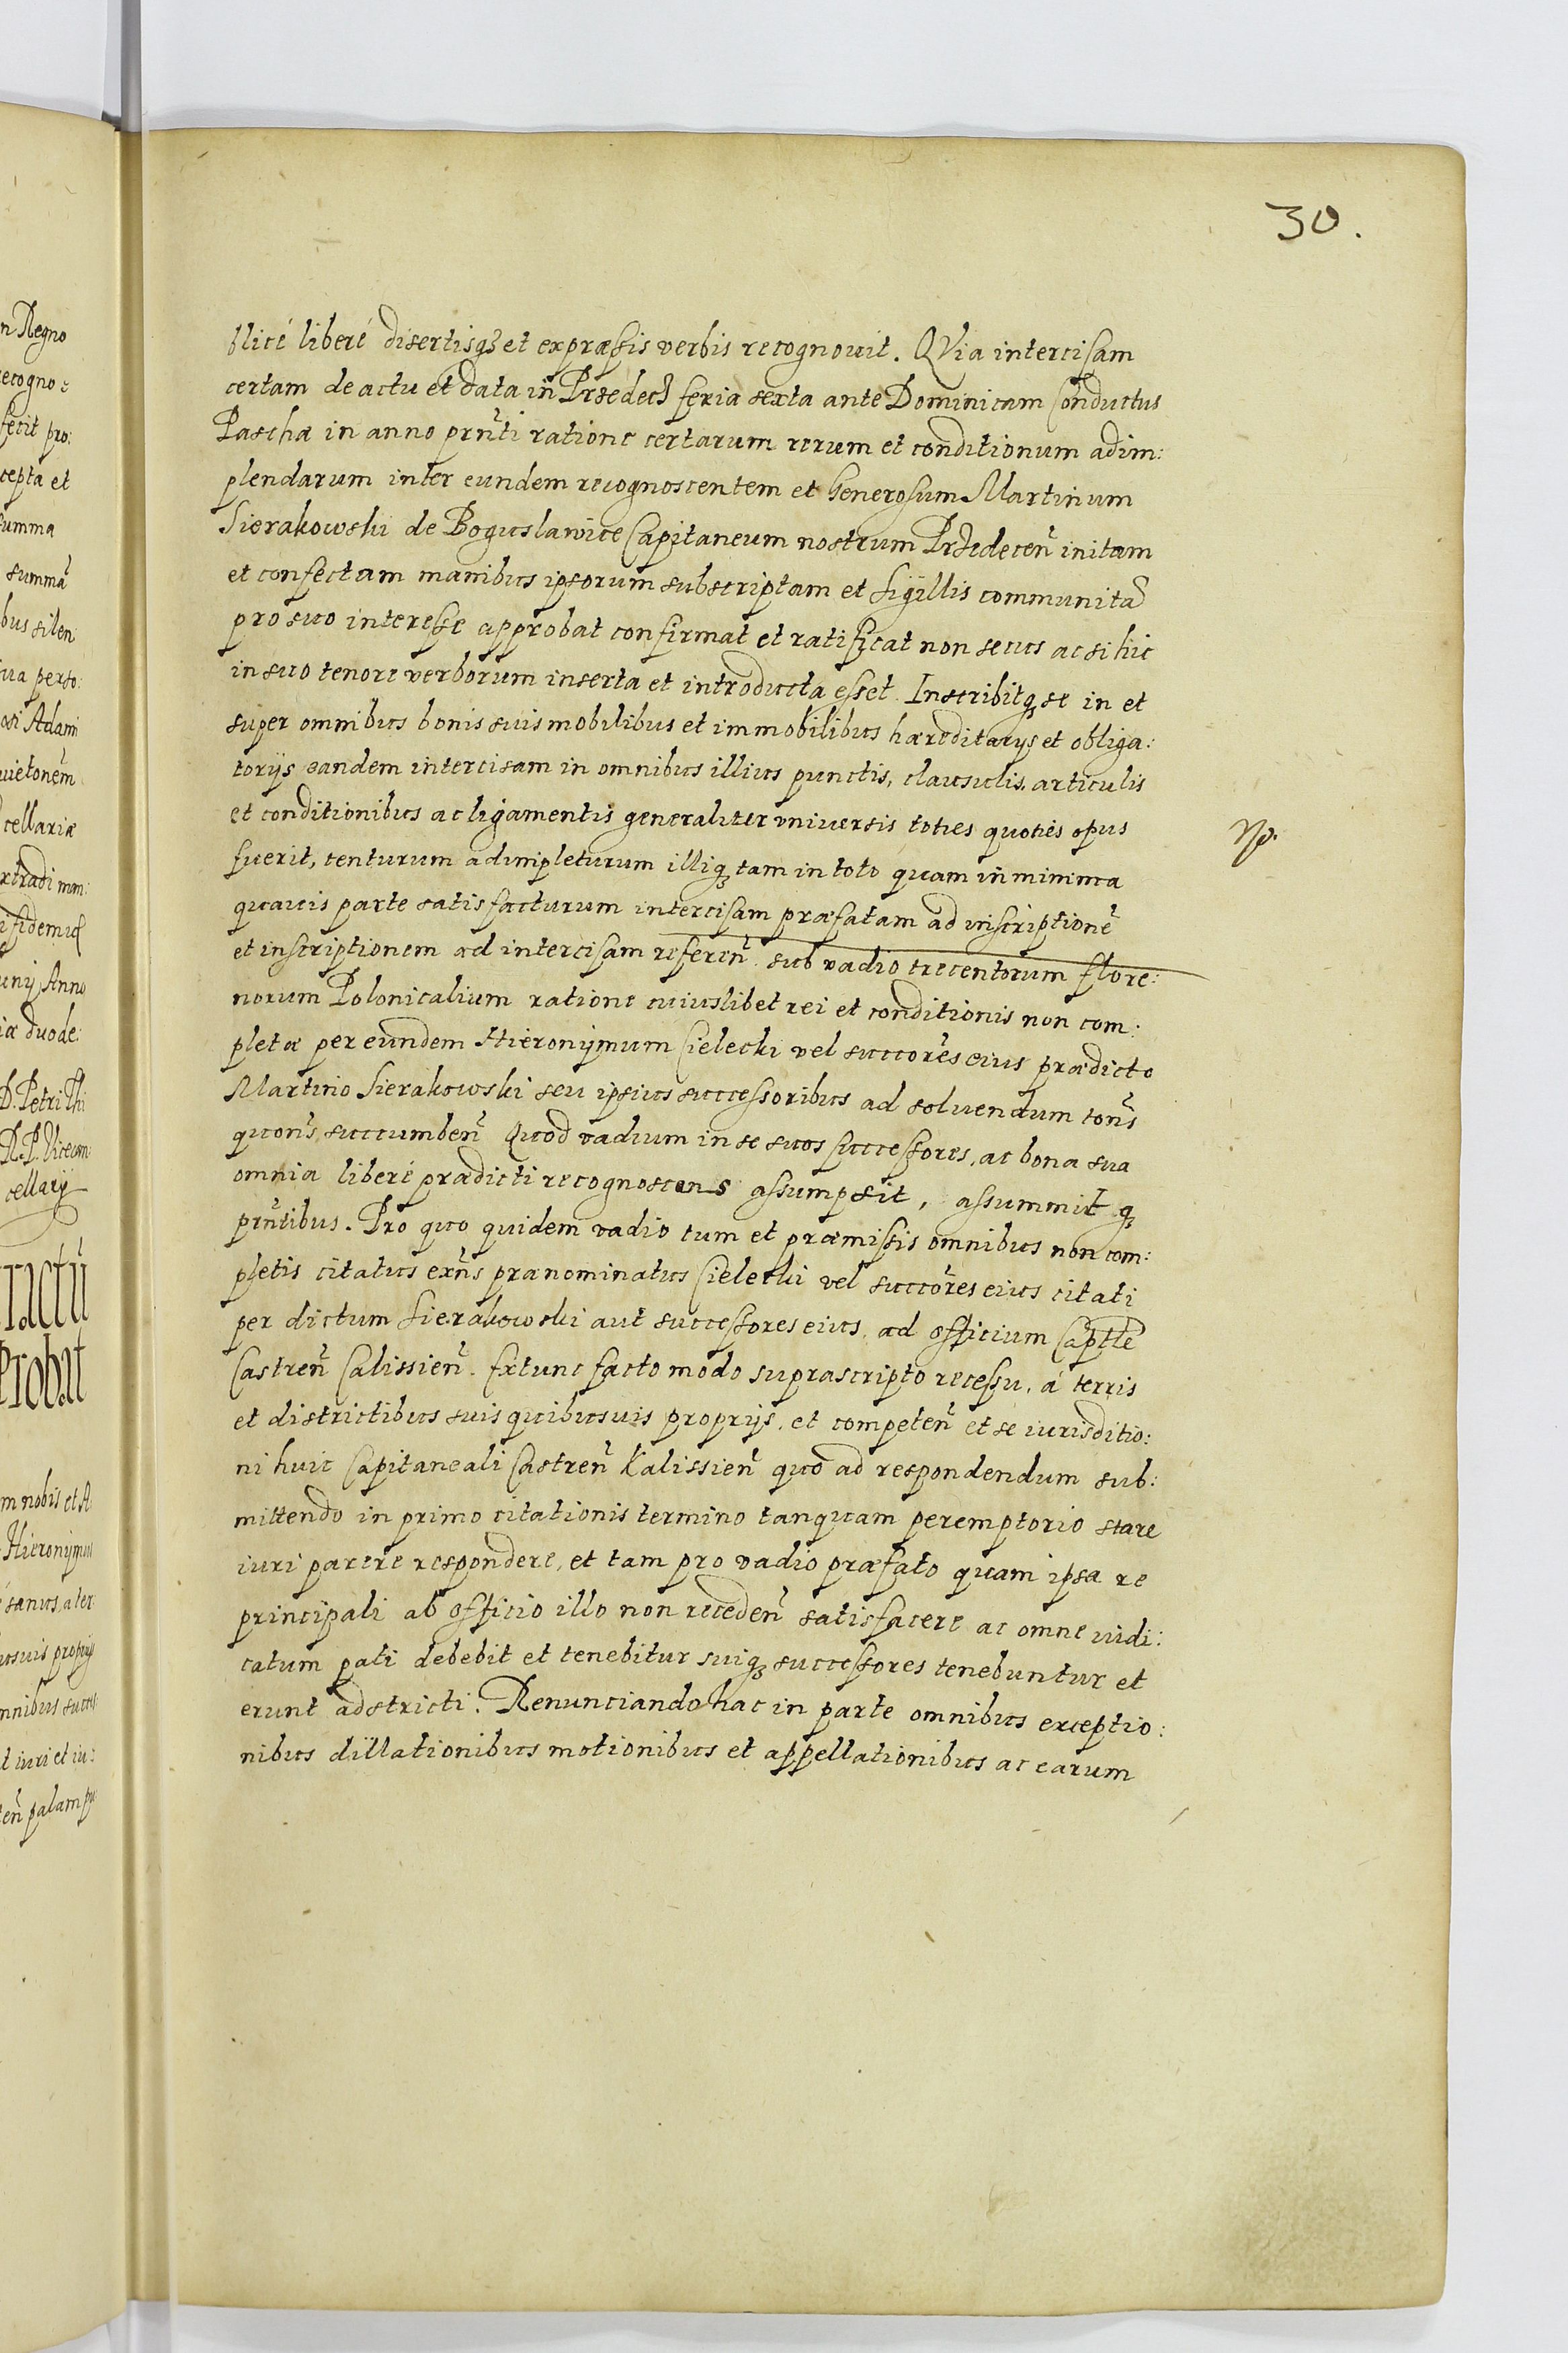 30.
blicé liberé disertisq3 et expræssis verbis recognovit. QVia intercisam
certam de actu et data in Przedecz feria sexta ante Dominicam Conductus
Paschæ in anno prñti ratione certarum rerum et conditionum adim:
plendarum inter eundem recognoscentem et Generosum Martinum
Sierakowski de Boguslawice Capitaneum nostrum Przedecen̄ initam
et confectam manibus ipsorum subscriptam et sigillis communitā
pro suo interesse approbat confirmat et ratificat non secus ac si hic
in suo tenore verborum inserta et introducta esset. Inscribitq3 se in et
super omnibus bonis suis mobilibus et immobilibus hæreditarys et obliga:
torijs eandem intercisam in omnibus illius punctis, clausulis, articulis
et conditionibus ac ligamentis generaliter vniuersis toties quoties opus
fuerit, tenturum adimpleturum illiq3 tam in toto quam in minima
quauis parte satisfacturum intercisam præfatam ad inscriptionē
et inscriptionem ad intercisam referen̄ sub vadio trecentorum flore:
norum Polonicalium ratione cuiuslibet rei et conditionis non com:
pletæ per eundem Hieronymum Cielecki vel succorēs eius prædicto
Martino Sierakowski seu ipsius successoribus ad soluendum ton̄s
quon̄s succumben̄ Quod vadium in se suos successores, ac bona sua
omnia liberé prædicti recognoscens assumpsit, assummit q3
prñtibus. Pro quo quidem vadio tum et præmissis omnibus non com:
pletis citatus exn̄s prænominatus Cielecki vel succorēs eius citati
per dictum Sierakowski aut successores eius, ad officium Captłe
Castren̄ Calissien̄. Extunc facto modo suprascripto recessu, á terris
et districtibus suis quibusuis proprijs, et competen̄ et se iurisditio:
ni huic Capitaneali Castren̄ Kalissien̄ quo ad respondendum sub:
mittendo in primo citationis termino tanquam peremptorio stare
iuri parere respondere, et tam pro vadio præfato quam ipsa re
principali ab officio illo non receden̄ satisfacere ac omne iudi:
catum pati debebit et tenebitur suiq3 successores tenebuntur et
erunt adstricti. Renunciando hac in parte omnibus exceptio:
nibus dillationibus motionibus et appellationibus ac earum